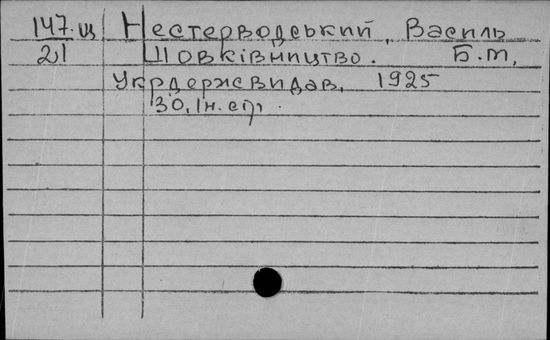 147.щ Нестерводський, Василь
21 Шовківництво. Б.м,
Укрдержвидав, 1925
30, Ін. стр.